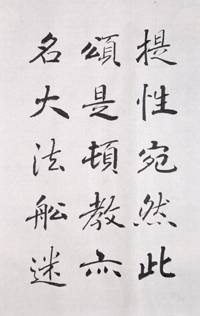 提性宛然此
頌是頓教亦
名大法船迷